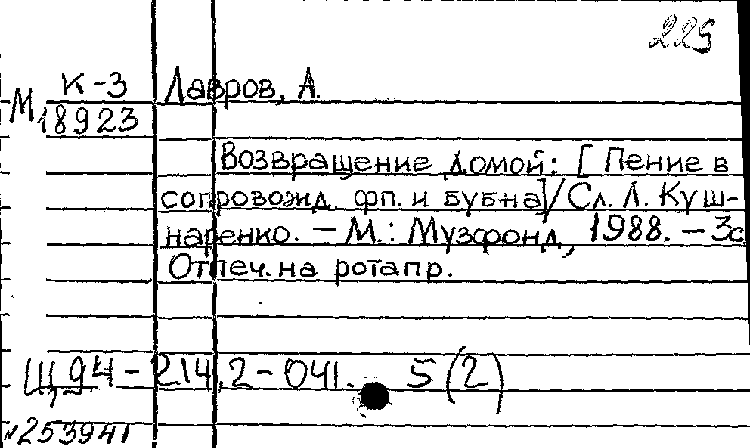 225
К-3 Лавров, А.
М 18923
Возвращение домой: [Пение в
сопровожд. фп. и бубна]/Сл. Л. Куш-
наренко. – М.: Музфонд, 1988. – 3с.
Отпеч. на ротапр.
Щ94-214.2-041. 5(2)
№253941